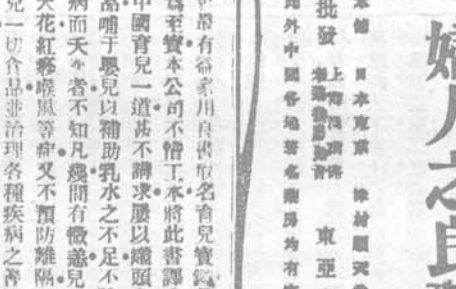 婦人之良
本舖 日本東京 津村順天
批發 上海 東亞
此外中國各地著名藥房均有
最有益家用良書取名育兒寶鑑
為至寶本公司不惜工本將此書譯
中國育兒一道甚不講求屢以罐頭
品哺于嬰兒以補助乳水之不足不
病而天者不知凡幾間有微恙兒
天花紅痧喉風等症又不預防離隔
兒一切食品並治理各種疾病之善